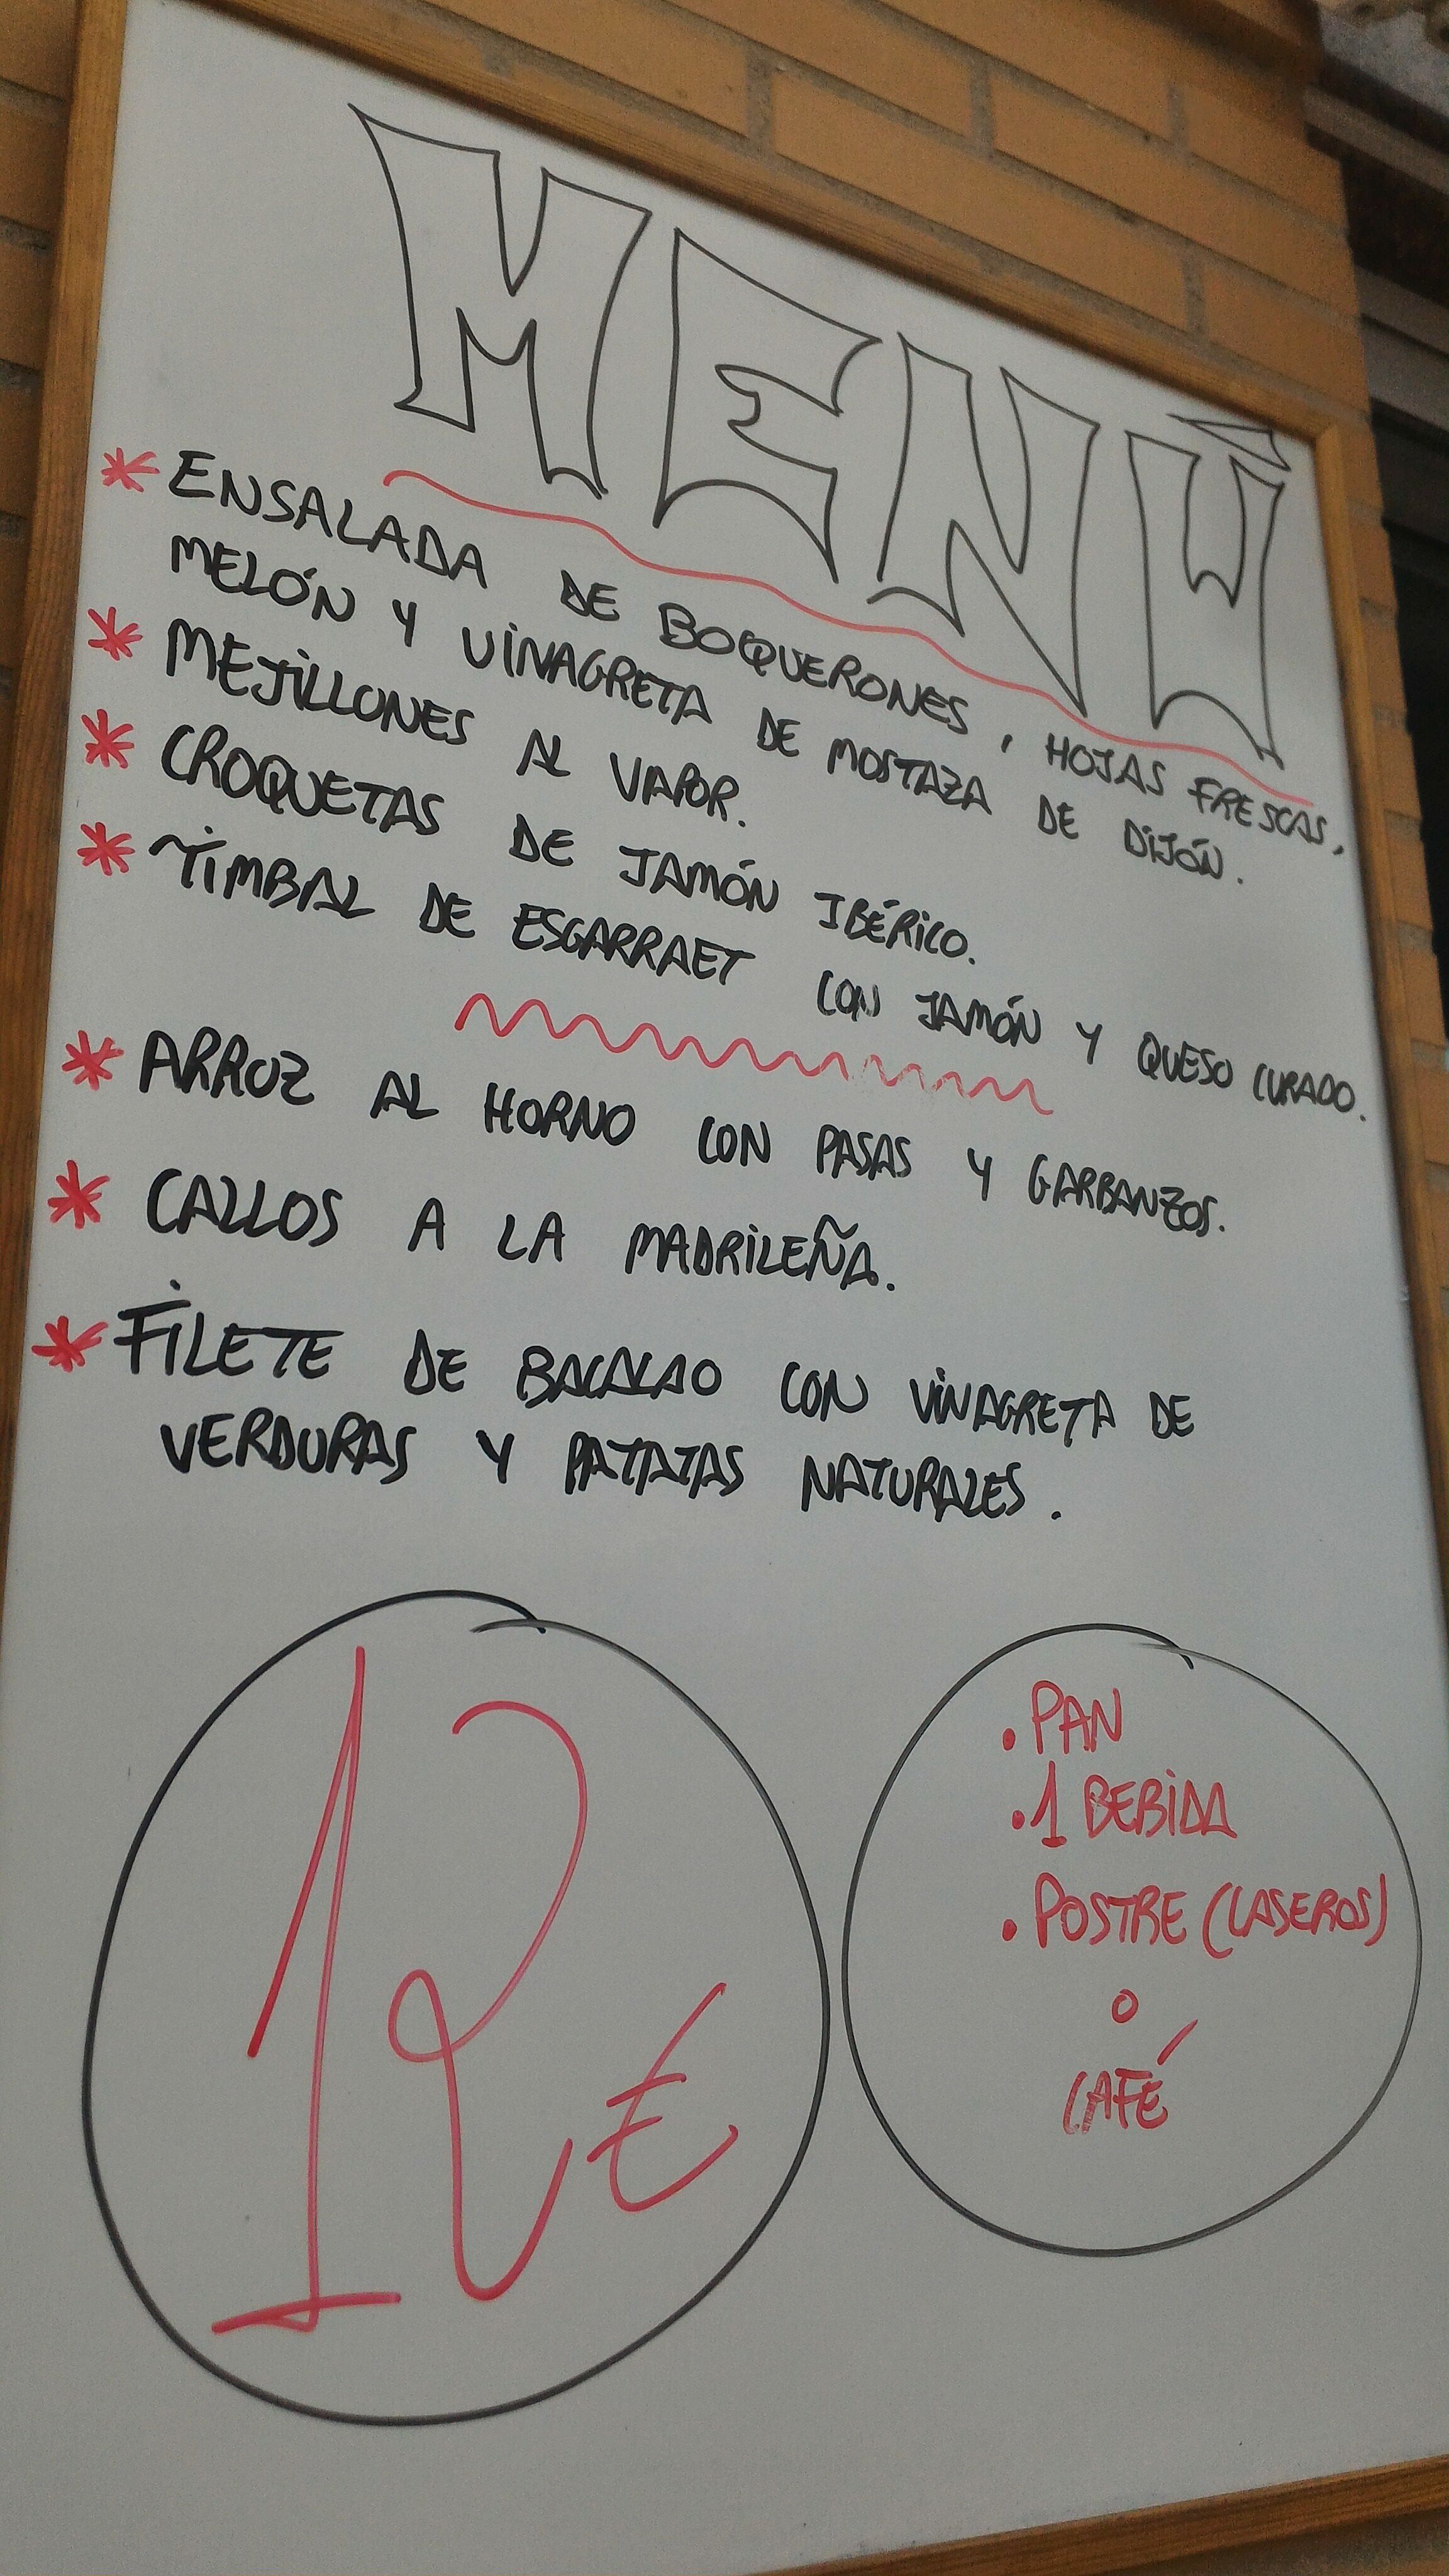 MENÚ
* ENSALADA DE BOQUERONES, HOJAS FRESCAS,
MELÓN Y VINAGRETA DE MOSTAZA DE DIJÓN.
* MEJILLONES AL VAPOR.
* CROQUETAS DE JAMÓN IBÉRICO.
* TIMBAL DE ESGARRAET CON JAMÓN Y QUESO CURADO.
* ARROZ AL HORNO CON PASAS Y GARBANZOS.
* CALLOS A LA MADRILEÑA.
* FILETE DE BACALAO CON VINAGRETA DE
VERDURAS Y PATATAS NATURALES.
12€
• PAN
• 1 BEBIDA
• POSTRE (CASEROS)
O
CAFÉ